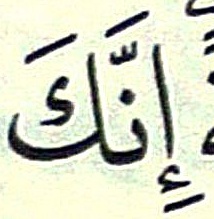 إِنَّكَ